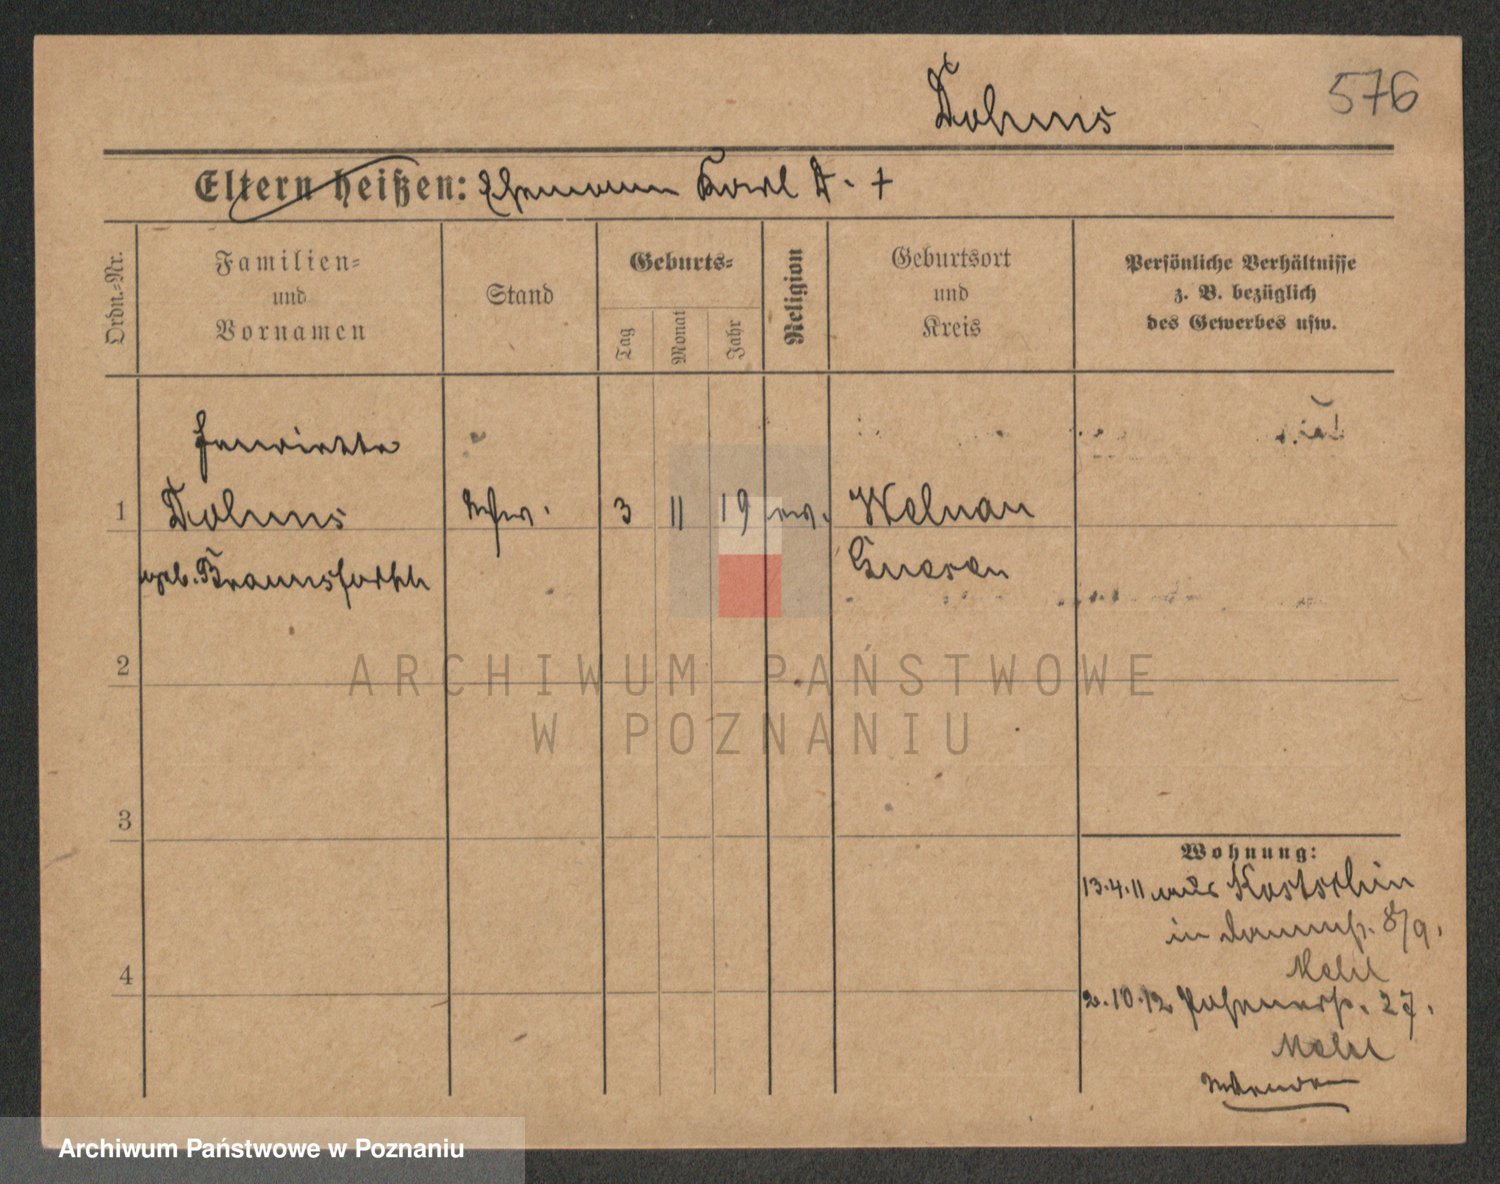 576
Dohms
Eltern heißen: Ehemann Karl D. +
Ordn.-Nr.
Familien-
und
Vornamen
Stand
Geburts-
Tag
Monat
Jahr
Religion
Geburtsort
und
Kreis
Persönliche Verhältnisse
z. B. bezüglich
des Gewerbes usw.
Henriette
1 Dohms Wwe. 3 11 19 ev. Welnau
geb. Braunsforth Gnesen
2
3
4
Wohnung:
13.4.11 aus Kostschin
in 8/9.
2.10.12 Posenerstr. 27.
Wenden
ARCHIWUM PAŃSTWOWE
W POZNANIU
Archiwum Państwowe w Poznaniu